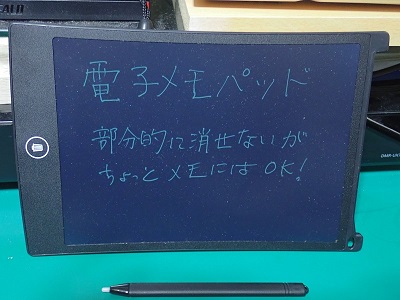 電子メモパッド
部分的に消せないが
ちょっとメモにはOK!